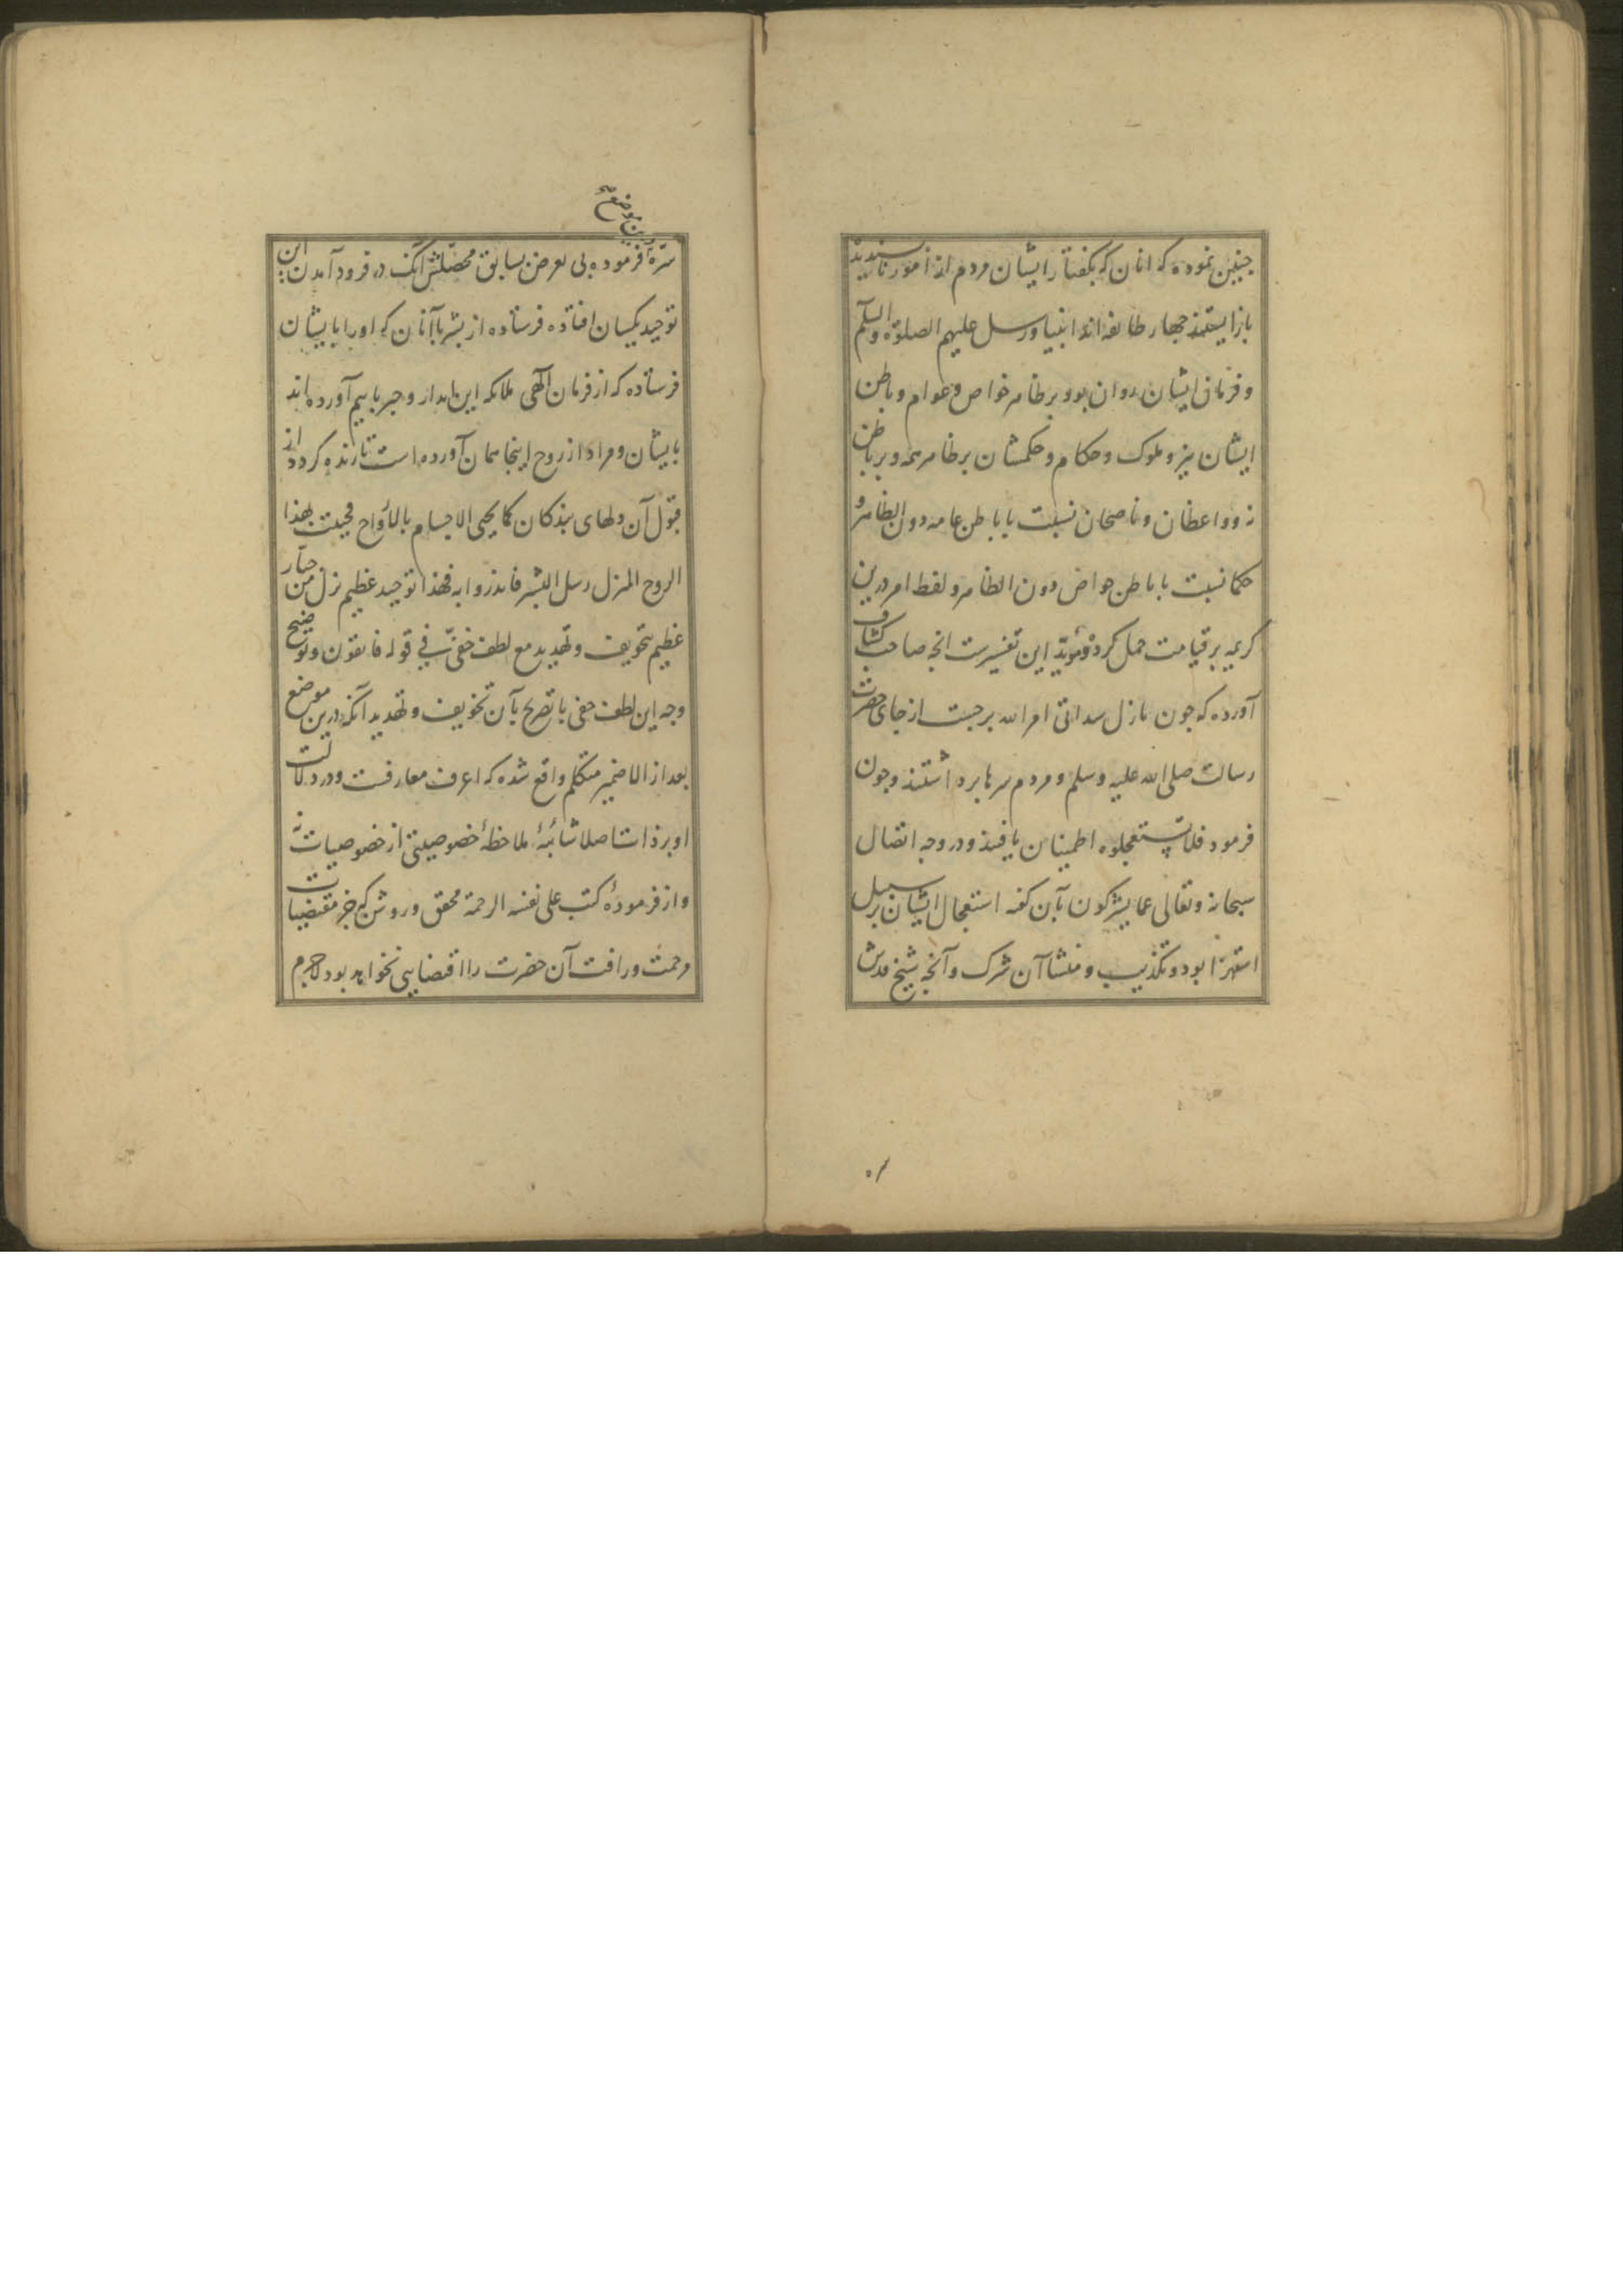 چنین نموده که انان که بگفتار ایشان مردم از امور ناپسندیده
باز ایستند چهار طایفه اند انبیا و رسل علیهم الصلوة والسلم
و فرمان ایشان روان بود بر ظاهر خواص و عوام و باطن
ایشان نیز و ملوک و حکام و حکمشان بر ظاهر همه و بر باطن
نه و واعظان و ناصحان نسبت با باطن عامه دون الظاهر و
حکما نسبت با باطن خواص دون الظاهر و لفظ امر درین
کریمه بر قیامت حمل کرده و مؤید این تفسیرست انچه صاحب کشاف
آورده که چون نازل شد اتی امر الله برجست از جای حضرت
رسالت صلی الله علیه وسلم و مردم سرها برداشتند و چون
فرمود فلا تستعجلوه اطمینان یافتند و در وجه اتصال
سبحانه و تعالی عما یشرکون بآن گفته استعجال ایشان بر سبیل
استهزا بود و تکذیب و منشا آن شرک و آنچه شیخ قدس
درین موضع
سره فرموده بی تعرض بسابق محصلش آنک در فرود آمدن این
توحید یکسان افتاده فرستاده از بشر با آنان که او را بایشان
فرستاده که از فرمان الهی ملائکه این انذار و خبر با بیم آورده اند
بایشان و مراد از روح اینجا همان آورده است تا زنده گردد از
قبول آن دلهای بندگان کما یحیی الاجسام بالارواح فحییت بهذا
الروح المنزل رسل البشر فانذروا به فهذا توحید عظیم نزل من جبار
عظیم بتخویف و تهدید مع لطف خفی فی قوله فاتقون و توضیح
وجه این لطف خفی با تصریح بآن تخویف و تهدید آنکه درین موضع
بعد از الا ضمیر متکلم واقع شده که اعرف معارفست و در دلالت
او بر ذات اصلا شائبهٔ ملاحظهٔ خصوصیتی از خصوصیات نه
و از فرمودهٔ کتب علی نفسه الرحمة محقق و روشن که جز مقتضیات
مرحمت و رافت آن حضرت را اقتضایی نخواهد بود لاجرم